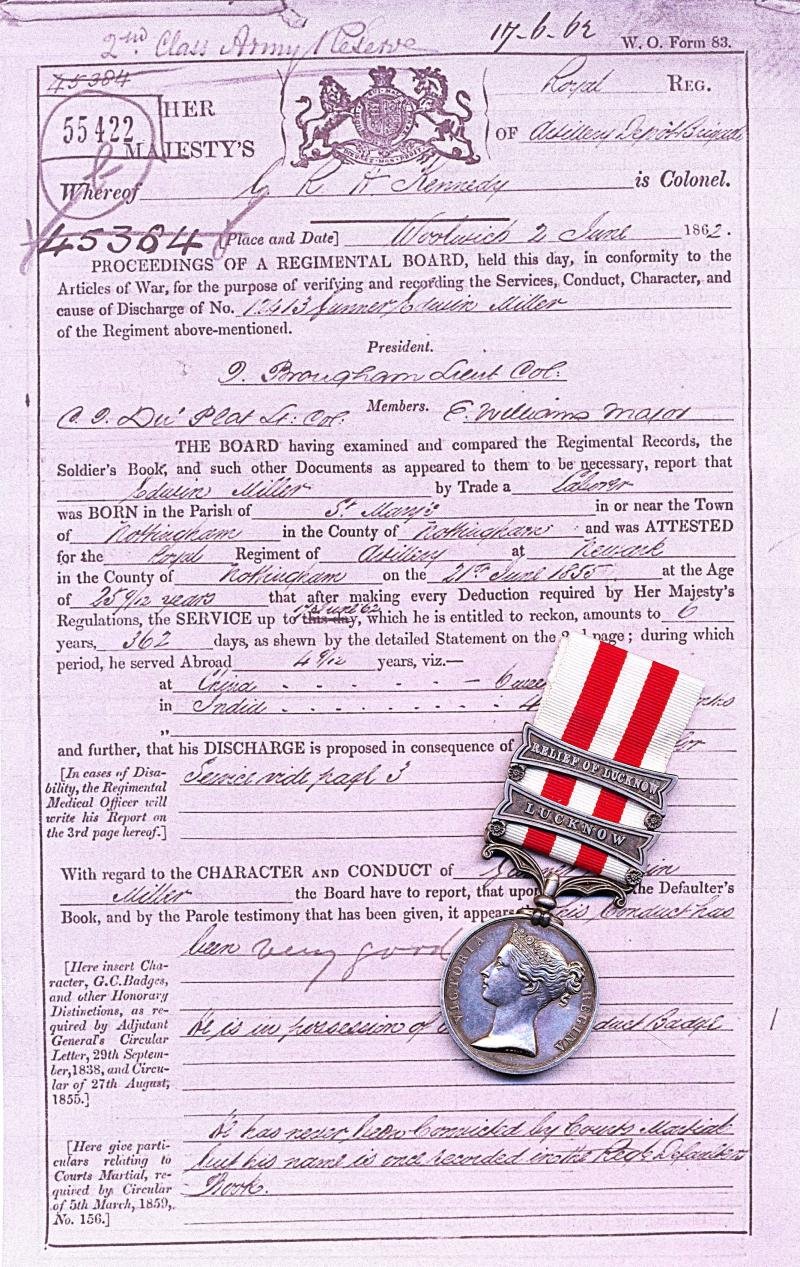 2nd Class Army Reserve
17-6-62
W. O. Form 83.
45384
55422
HER
MAJESTY'S
Royal REG.
OF Artillery Depôt Brigade
Whereof C R H Kennedy is Colonel.
45384 [Place and Date] Woolwich 2 June 1862.
PROCEEDINGS OF A REGIMENTAL BOARD, held this day, in conformity to the
Articles of War, for the purpose of verifying and recording the Services, Conduct, Character, and
cause of Discharge of No. 12413 Gunner Edwin Miller
of the Regiment above-mentioned.
President.
Brougham Lieut Col.
Members.
Du Plat Lt. Col. E. Williams Major
THE BOARD having examined and compared the Regimental Records, the
Soldier's Book, and such other Documents as appeared to them to be necessary, report that
Edwin Miller by Trade a Laborer
was BORN in the Parish of St Mary's in or near the Town
of Nottingham in the County of Nottingham and was ATTESTED
for the Royal Regiment of Artillery at Newark
in the County of Nottingham on the 21st June 1855 at the Age
of 25 9/12 years that after making every Deduction required by Her Majesty's
Regulations, the SERVICE up to this day, 1st June 62 which he is entitled to reckon, amounts to 6
years, 362 days, as shewn by the detailed Statement on the page; during which
period, he served Abroad 4 9/12 years, viz.—
at China
in India 4
„
and further, that his DISCHARGE is proposed in consequence of
[In cases of Disa-
bility, the Regimental
Medical Officer will
write his Report on
the 3rd page hereof.]
Service vide page 3
RELIEF OF LUCKNOW
LUCKNOW
With regard to the CHARACTER AND CONDUCT of
Miller the Board have to report, that upon the Defaulter's
Book, and by the Parole testimony that has been given, it appears his Conduct has
been very good
VICTORIA REGINA
[Here insert Cha-
racter, G.C. Badges,
and other Honorary
Distinctions, as re-
quired by Adjutant
General's Circular
Letter, 29th Septem-
ber, 1838, and Circu-
lar of 27th August,
1855.]
He is in possession of Badge
[Here give parti-
culars relating to
Courts Martial, re-
quired by Circular
of 5th March, 1859,
No. 156.]
He has never been Convicted by Courts Martial
but his name is once recorded in the Regtl Defaulters
Book.